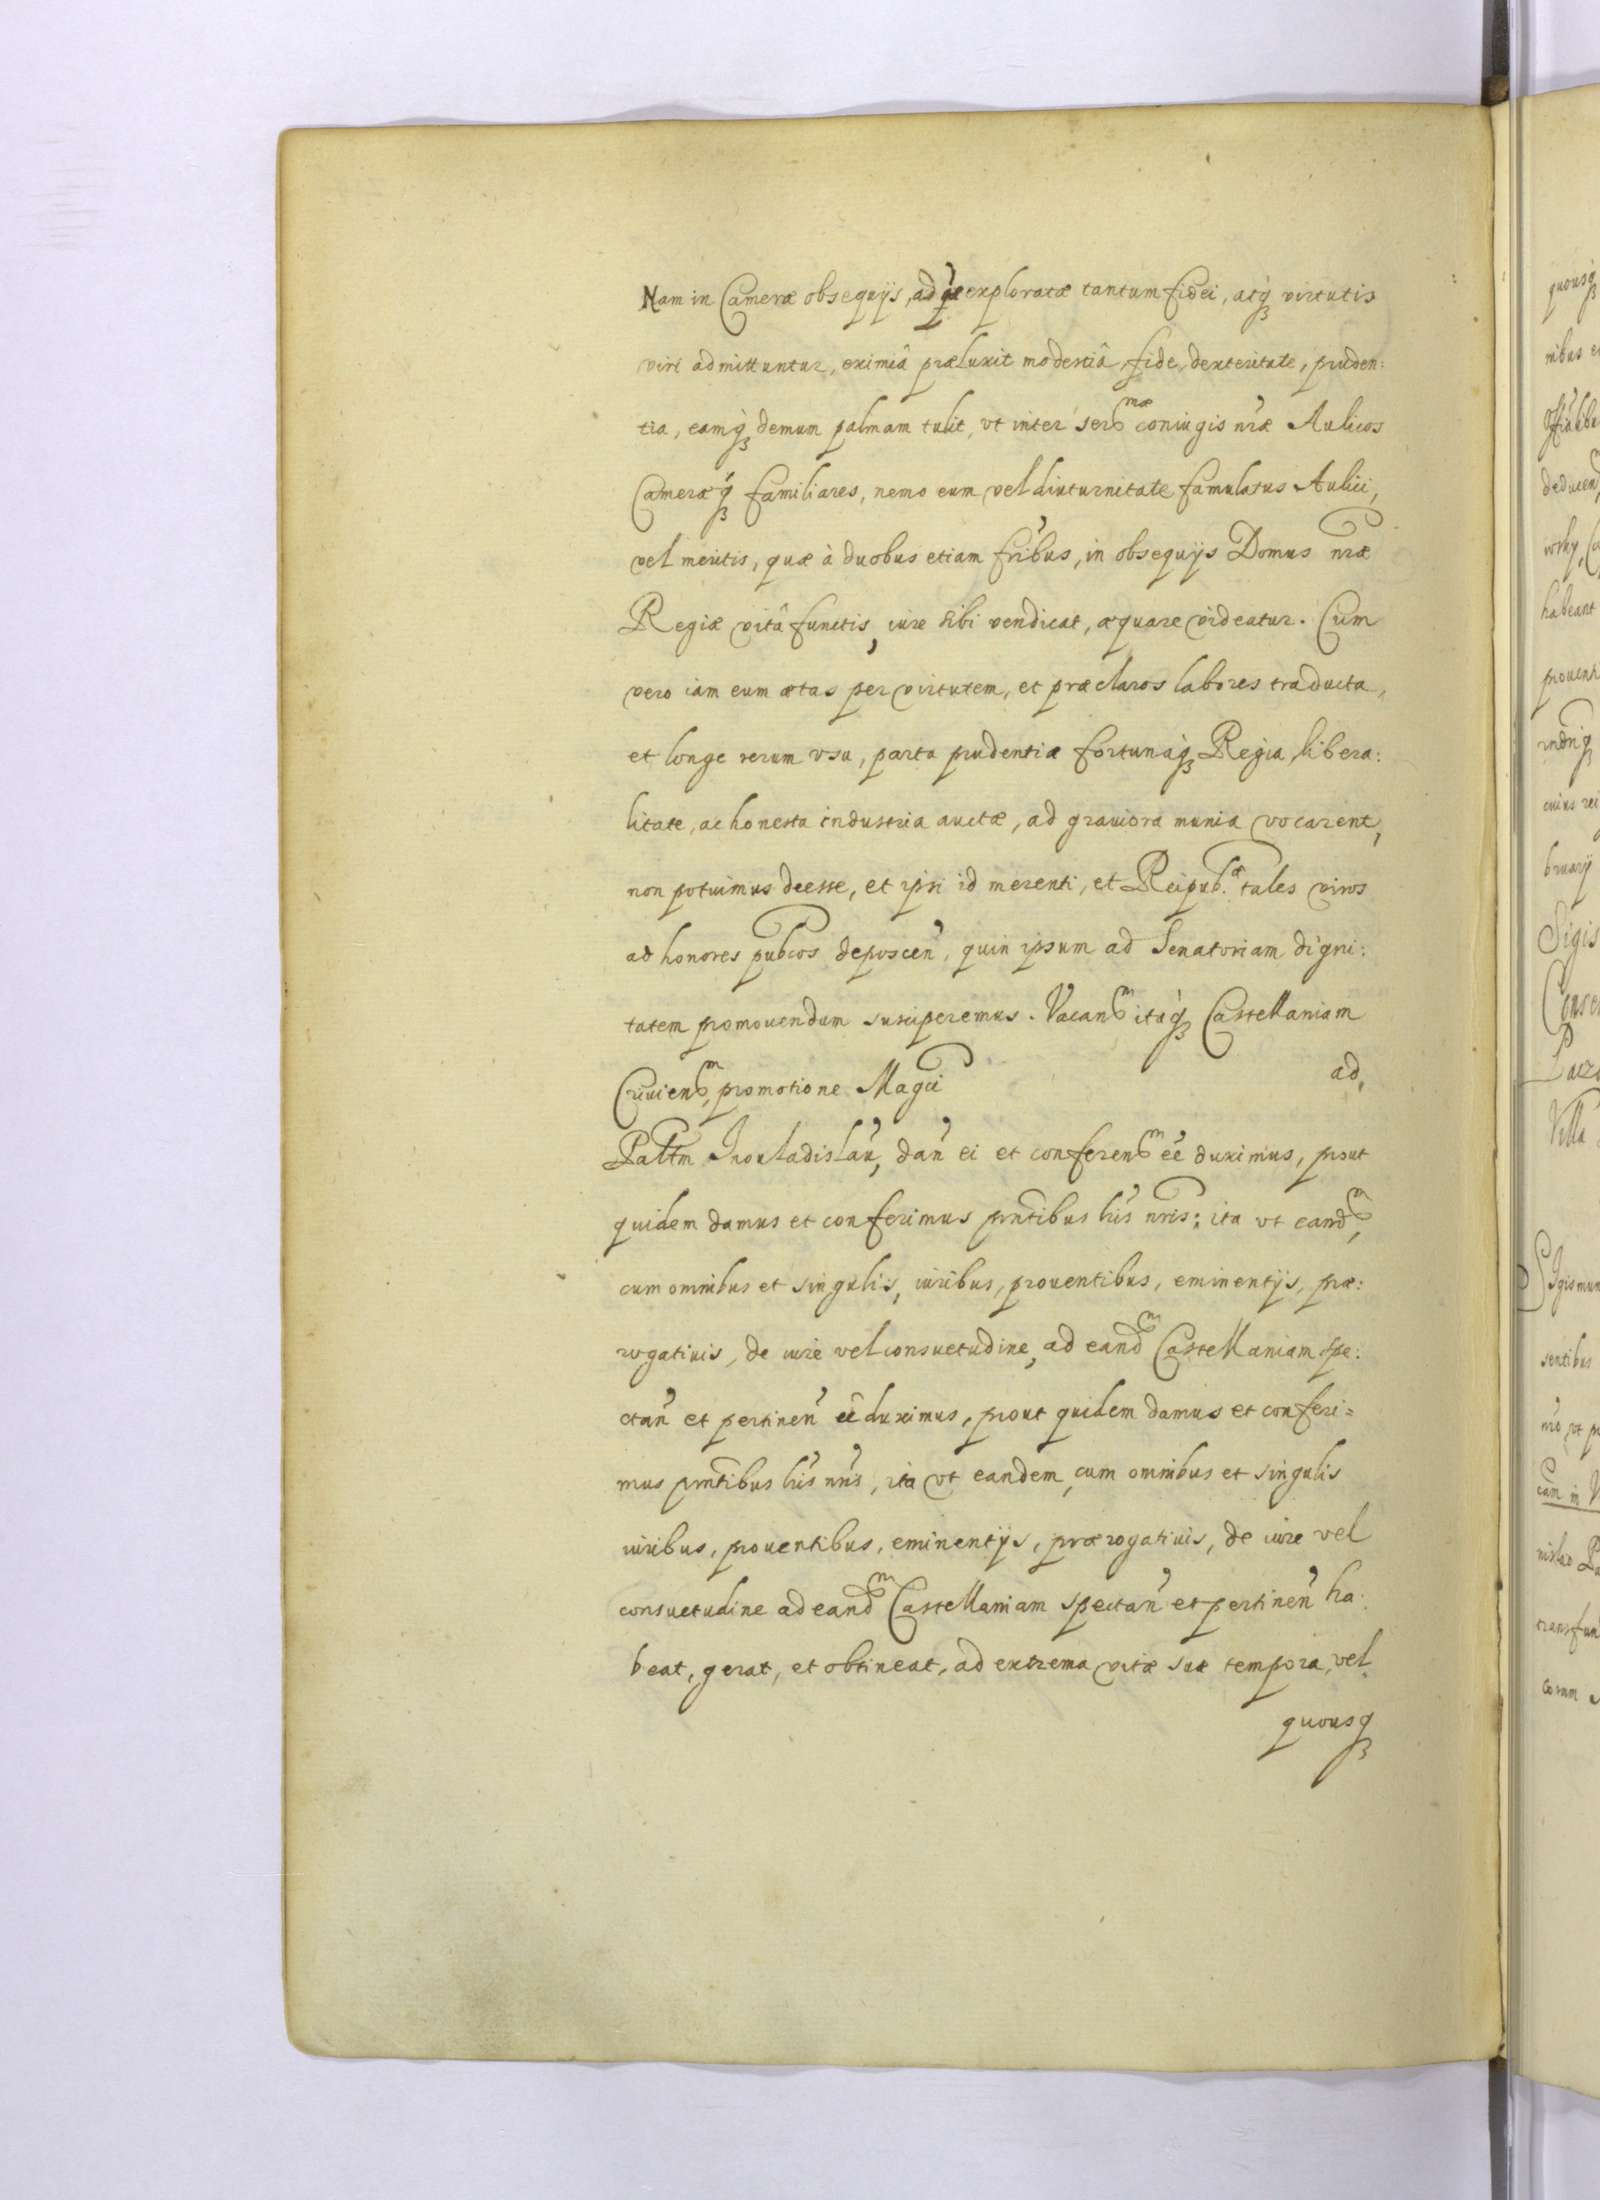 Nam in Cameræ obsequijs, ad quæ exploratæ tantum fidei, atq3 virtutis
viri admittuntur, eximiâ præluxit modestiâ, fide, dexteritate, pruden:
tia, eamq3 demum palmam tulit, vt inter Seren^mæ coniugis nræ Aulicos
Cameræq3 familiares, nemo eum vel diuturnitate famulatus Aulici,
vel meritis, quæ à duobus etiam fribus, in obsequijs Domus nræ
Regiæ vitâ functis, iure sibi vendicat, æquare videatur. Cum
vero iam eum ætas per virtutem, et præclaros labores traducta,
et longe rerum vsu, parta prudentiæ fortunaq3 Regia libera:
litate, ac honesta industria auctæ, ad grauiora munia vocarent,
non potuimus deesse, et ipsi id merenti, et Reipub.^æ tales viros
ad honores pubcos deposcen, quin ipsum ad Senatoriam digni:
tatem promouendum susciperemus. Vacan^m itaq3 Castellaniam
Criuien^m, promotione Magci ad,
Palttm Inouladislau, dan ei et conferen^m ee duximus, prout
quidem damus et conferimus prntibus lris nris: ita vt eand^m,
cum omnibus et singulis, iuribus, prouentibus, eminentijs, præ:
rogatiuis, de iure vel consuetudine, ad eand^m Castellaniam spe:
ctan et pertinen ee duximus, prout quidem damus et conferi=
mus prntibus lris nris, ita vt eandem, cum omnibus et singulis
iuribus, prouentibus, eminentijs, prærogatiuis, de iure vel
consuetudine ad eand^m Castellaniam spectan et pertinen ha:
beat, gerat, et obtineat, ad extrema vitæ suæ tempora, vel
quousq3